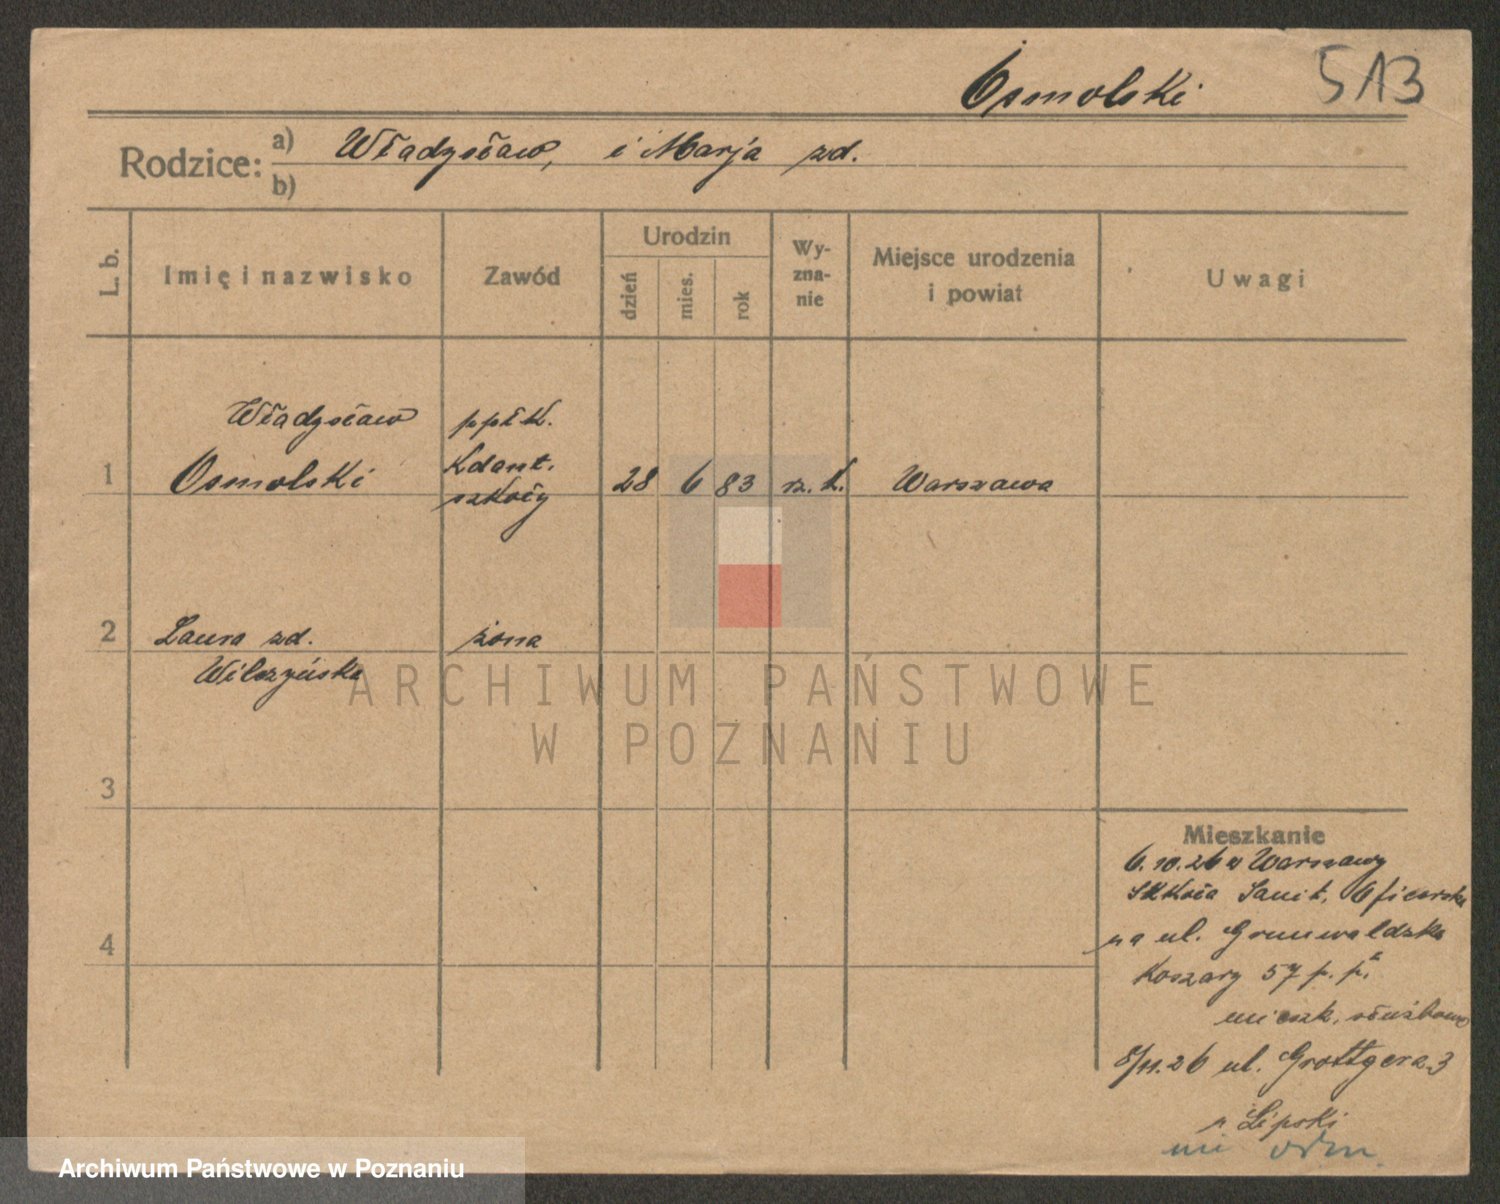 Osmolski 513
Rodzice: a) Władysław, i Marja zd.
b)
L. b. Imię i nazwisko Zawód Urodzin dzień mies. rok Wy-zna-nie Miejsce urodzenia i powiat Uwagi
Władysław ppłk.
1 Osmolski Kdant. szkoły 28 6 83 rz. k. Warszawa
2 Laura zd. żona
Wilczyńska
ARCHIWUM PAŃSTWOWE
W POZNANIU
3
Mieszkanie
6.10.26 z Warszawy
Szkoła Sanit. Oficerska
4
na ul. Grunwaldzka
Koszary 57 p. p.
mieszk. służbowe
8/11.26 ul. Grottgera 3
Lipski
Archiwum Państwowe w Poznaniu